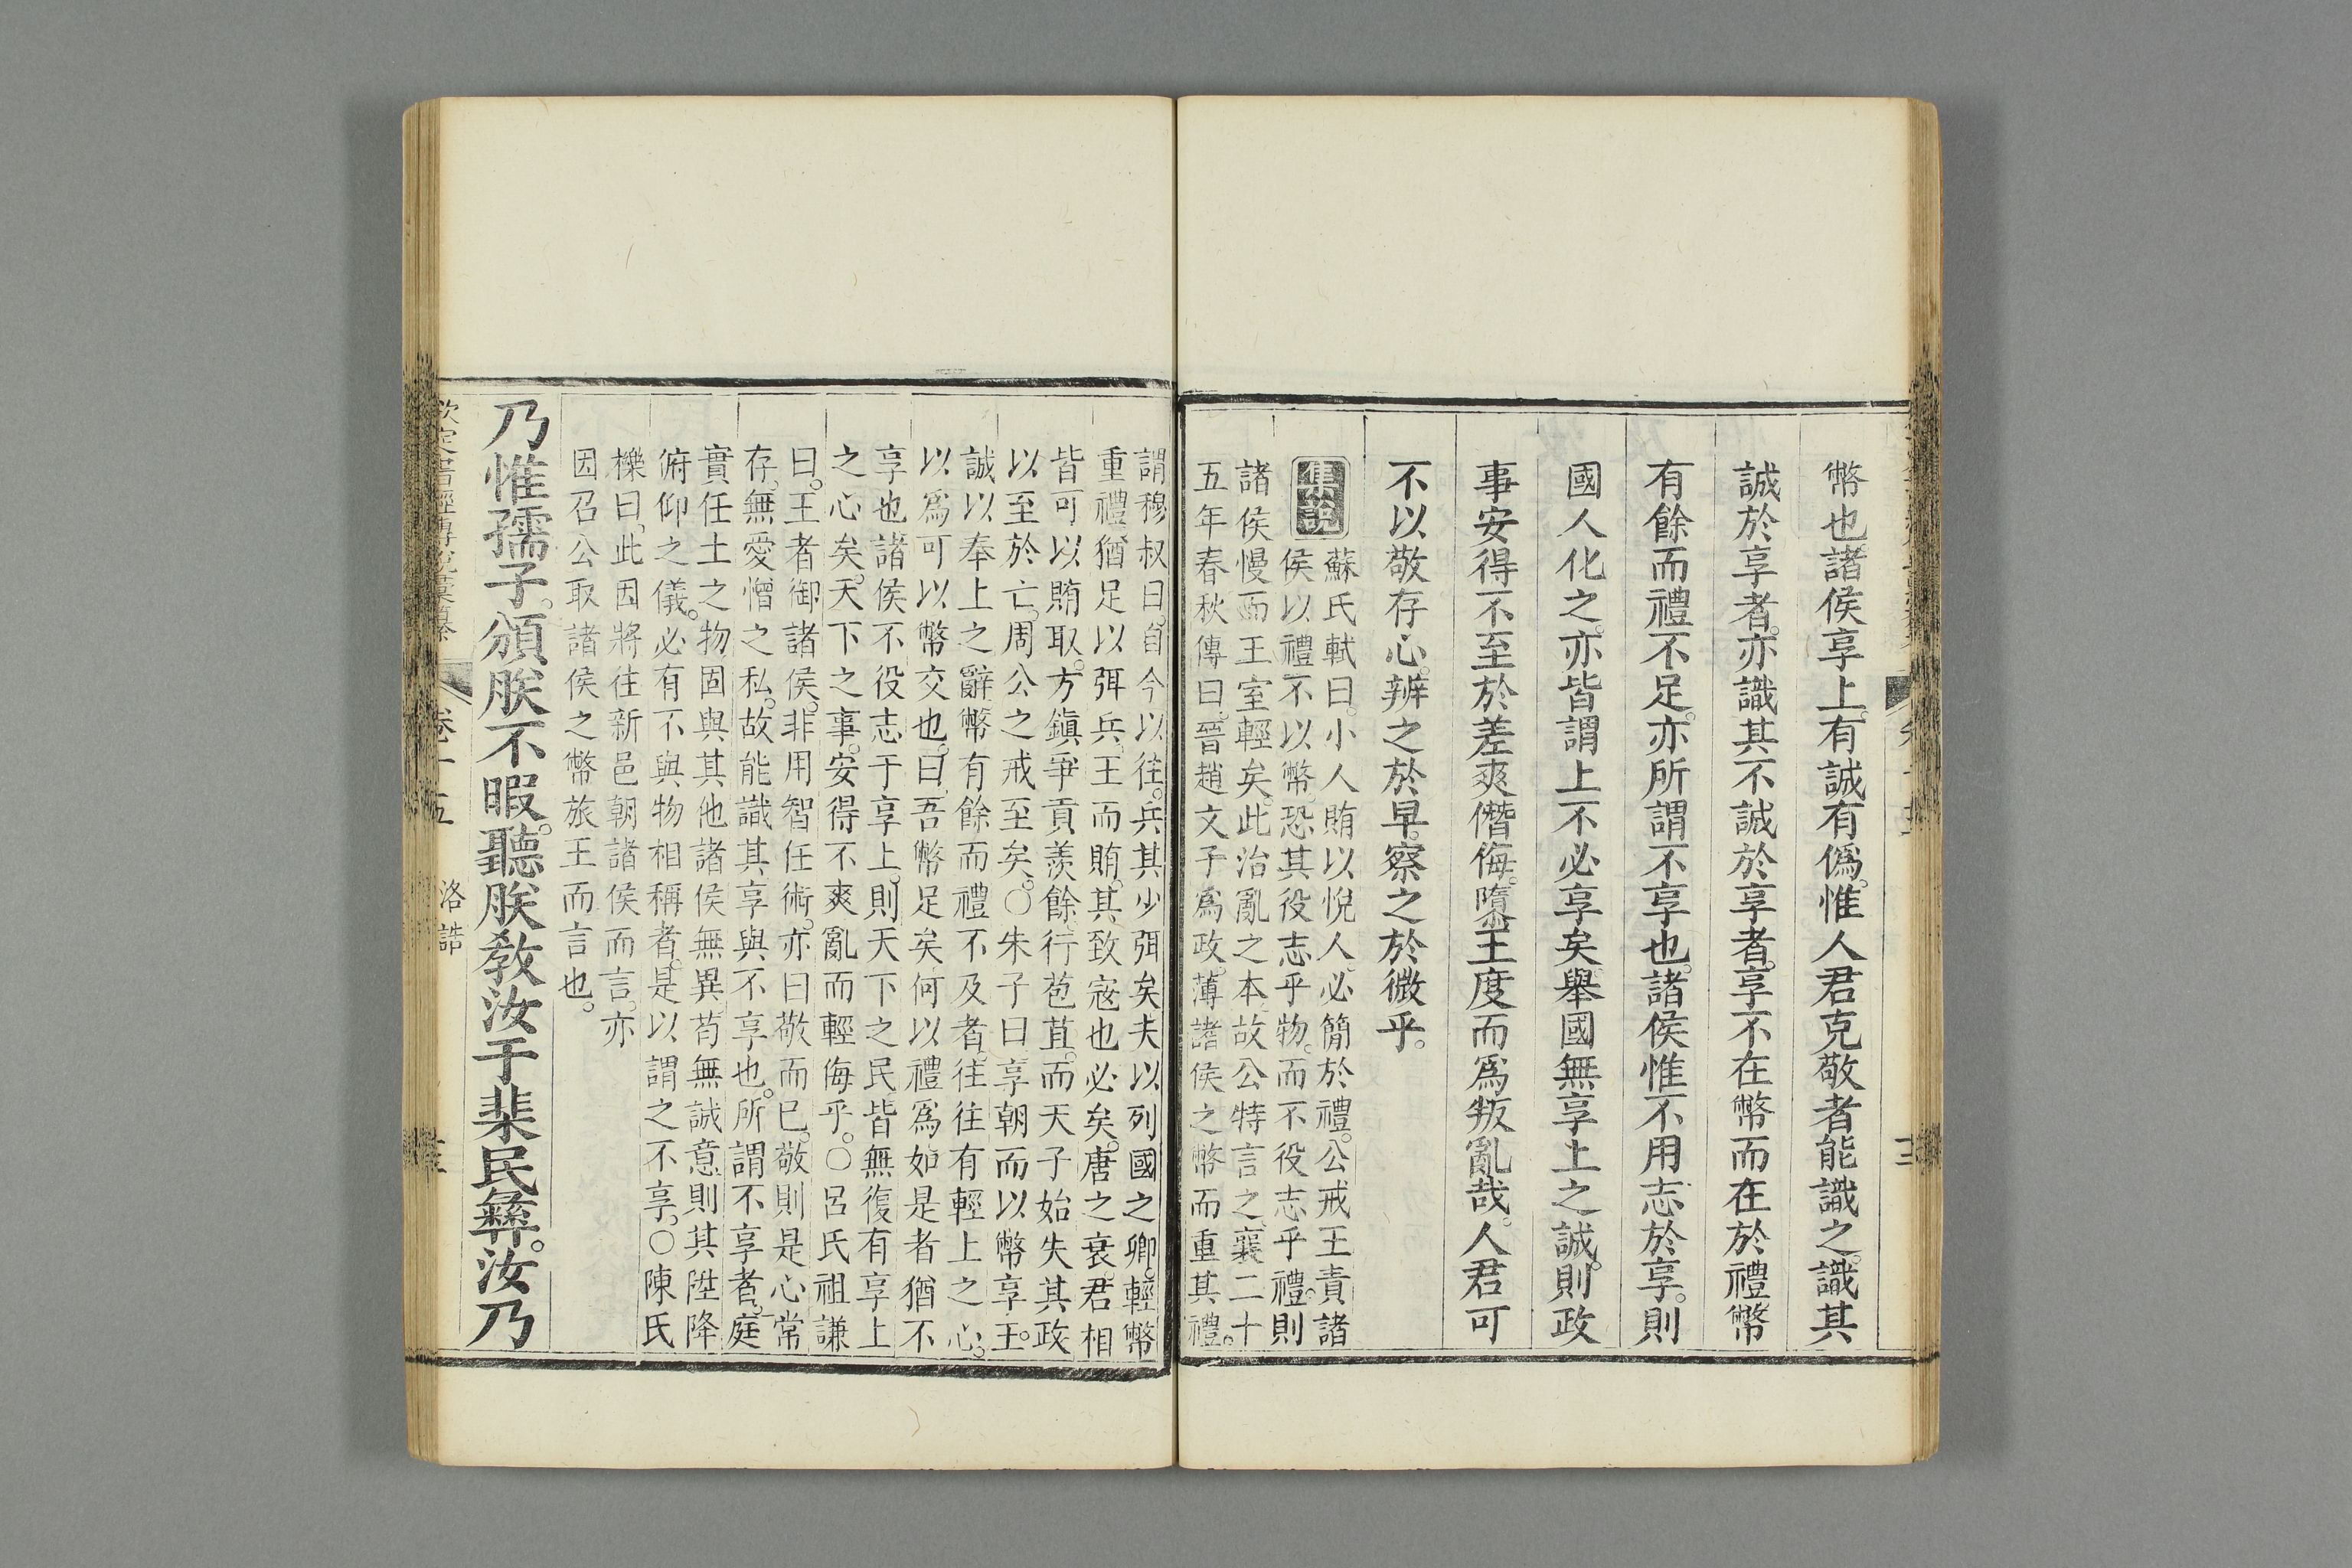 幣也。諸侯享上。有誠有僞。惟人君克敬者能識之。識其
誠於享者。亦識其不誠於享者。享不在幣而在於禮。幣
有餘而禮不足。亦所謂不享也。諸侯惟不用志於享。則
國人化之。亦皆謂上不必享矣。舉國無享上之誠。則政
事安得不至於差爽僭侮。隳王度而爲叛亂哉。人君可
不以敬存心。辨之於早。察之於微乎。
集說
蘇氏軾曰。小人賄以悅人。必簡於禮。公戒王責諸
侯以禮不以幣。恐其役志乎物。而不役志乎禮。則
諸侯慢而王室輕矣。此治亂之本。故公特言之。襄二十
五年春秋傳曰。晉趙文子爲政。薄諸侯之幣而重其禮。
謂穆叔曰。自今以往。兵其少弭矣。夫以列國之卿。輕幣
重禮。猶足以弭兵。王而賄。其致寇也必矣。唐之衰。君相
皆可以賄取。方鎮爭貢羨餘。行苞苴。而天子始失其政
以至於亡。周公之戒至矣。○朱子曰。享朝而以幣享王。
誠以奉上之辭。幣有餘而禮不及者。往往有輕上之心。
以爲可以幣交也。曰。吾幣足矣。何以禮爲。如是者猶不
享也。諸侯不役志于享上。則天下之民。皆無復有享上
之心矣。天下之事。安得不爽亂而輕侮乎。○呂氏祖謙
曰。王者御諸侯。非用智任術。亦曰敬而已。敬則是心常
存。無愛憎之私。故能識其享與不享也。所謂不享者。庭
實任土之物。固與其他諸侯無異。苟無誠意。則其陞降
俯仰之儀。必有不與物相稱者。是以謂之不享。○陳氏
櫟曰。此因將往新邑。朝諸侯而言。亦
因召公取諸侯之幣旅王而言也。
乃惟孺子。頒朕不暇。聽朕敎汝于棐民彝。汝乃
欽定書經傳說彙纂
卷十五
洛誥